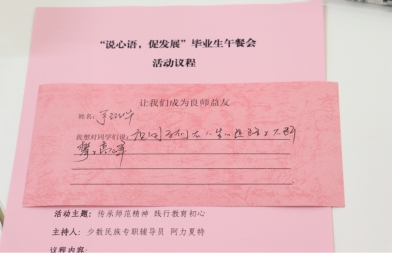 “说心语，促发展”毕业生午餐会
活动议程
让我们成为良师益友
姓名：
我想对同学们说：祝同学们在人生道路上不断
攀高峰
活动主题：传承师范精神 践行教育初心
主持人：少数民族专职辅导员 阿力夏特
议程内容：